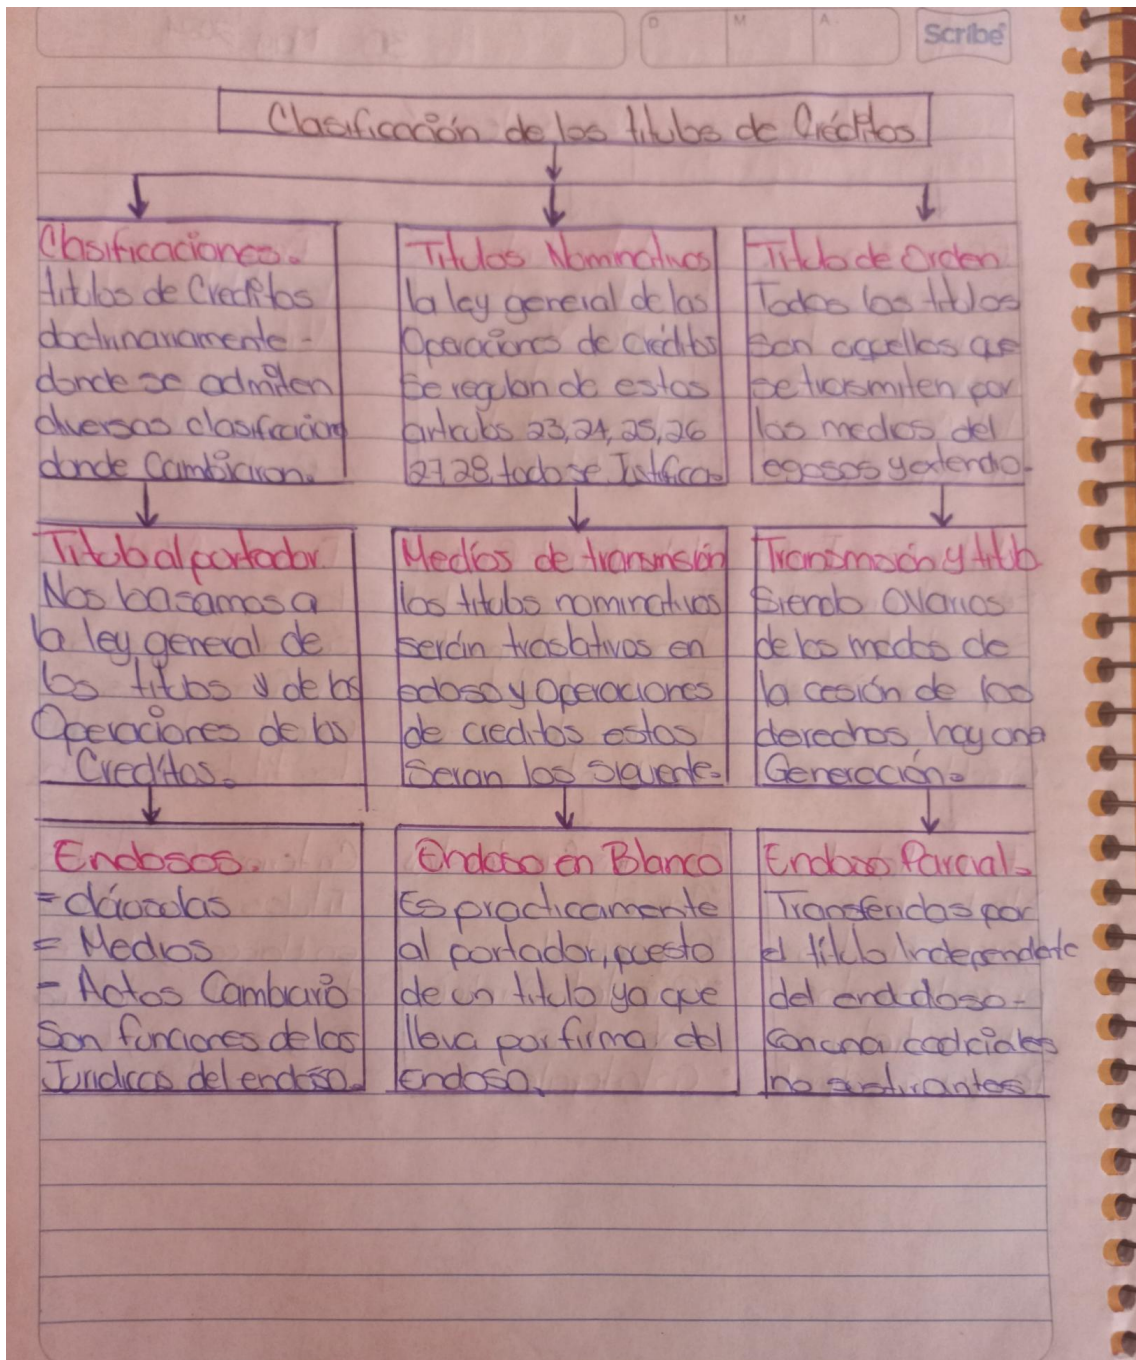 D M A
Scribe
Clasificación de los titulos de Créditos
Clasificaciones.
titulos de Creditos
doctrinariamente -
donde se admiten
diversas clasificacion
donde Cambiaron.
Titulos Nominativos
la ley general de las
Operaciones de Créditos
se regulan de estos
articulos 23, 24, 25, 26
27 28, todo se Justifica.
Titulo de Orden
Todos los titulos
son aquellos que
se trasmiten por
los medios del
y
Titulo al portador
Nos basamos a
la ley general de
los titulos y de los
Operaciones de los
Creditos.
Medios de transmisión
los titulos nominativos
serán traslativos en
y Operaciones
de creditos estos
Seran los siguente.
y titulo
Siendo
de los modos de
la cesión de los
derechos, hay una
Generación.
Endosos.
=
= Medios
- Actos Cambiario
Son funciones de las
Juridicas del endoso.
Endoso en Blanco
Es practicamente
al portador, puesto
de un titulo ya que
lleva por firma del
endoso.
Endoso Parcial.
Transferidas por
el título Independete
del
no